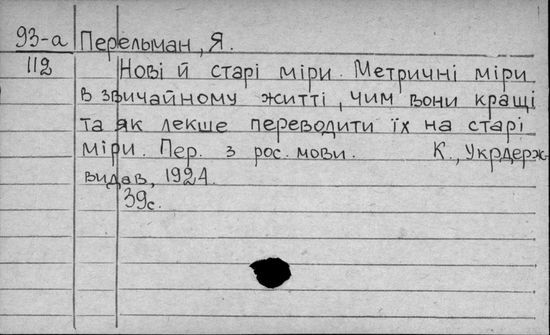 93-а Перельман, Я.
112 Нові й старі міри. Метричні міри
в звичайному житті, чим вони кращі
та як лекше переводити їх на старі
міри. Пер. з рос. мови. К., Укрдерж-
видав, 1924.
39с.